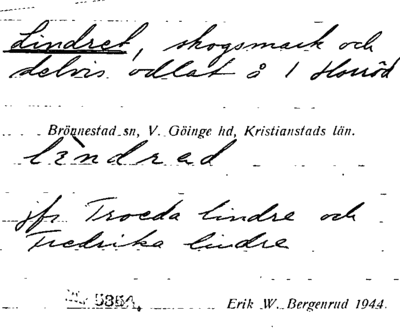 Lindret, skogsmark och
delvis odlat å 1 Horröd
Brönnestad sn, V. Göinge hd, Kristianstads län.
lindred
jfr Troeda lindre och
Fredrika lindre
5864, Erik W. Bergenrud 1944.